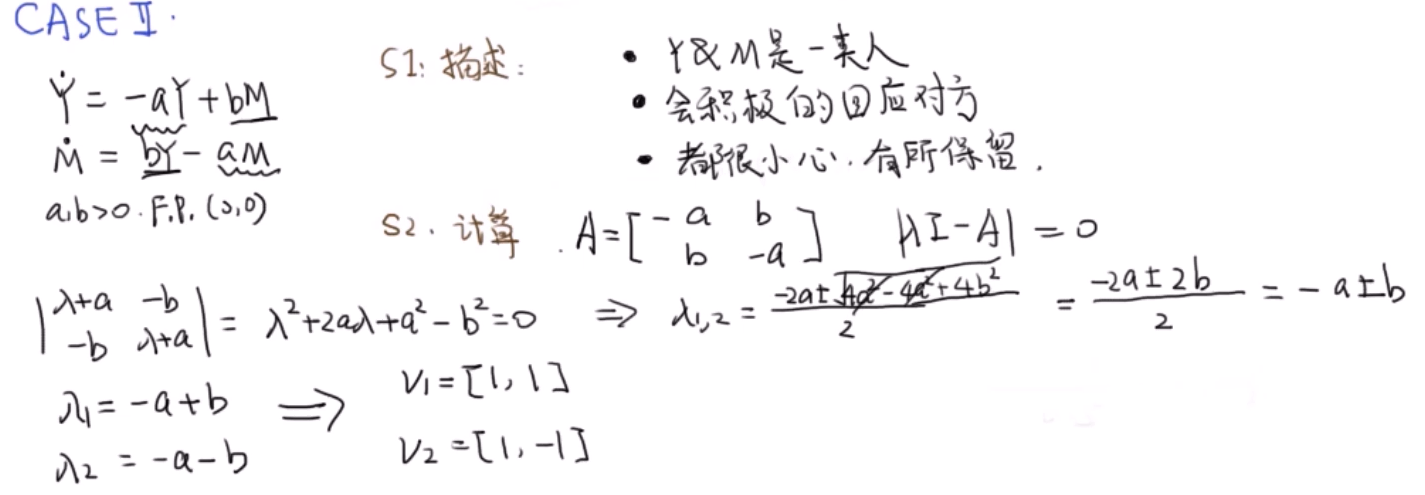 CASE II.
Ẏ = -aY + bM
Ṁ = bY - aM
a,b>0. F.P. (0,0)
S1: 描述:
• Y&M是一类人
• 会积极的回应对方
• 都很小心. 有所保留.
S2. 计算. A = [-a b; b -a] |λI-A| = 0
|λ+a -b; -b λ+a| = λ²+2aλ+a²-b²=0 ⇒ λ1,2 = (-2a±√(4a²-4a²+4b²))/2 = (-2a±2b)/2 = -a±b
λ1 = -a+b ⇒ V1=[1, 1]
λ2 = -a-b V2=[1, -1]